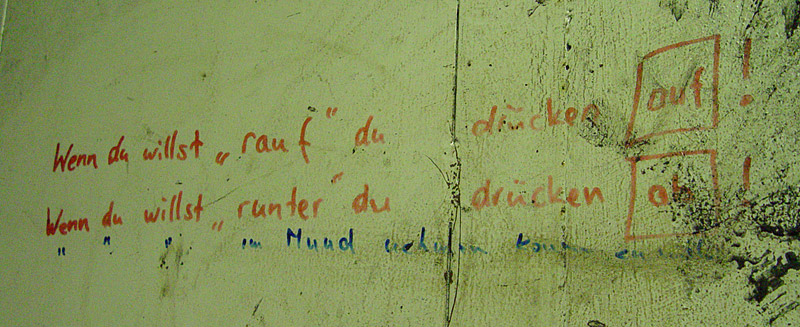 Wenn du willst „rauf" du drücken auf!
Wenn du willst „runter" du drücken ab!
" " " im Mund nehmen komm